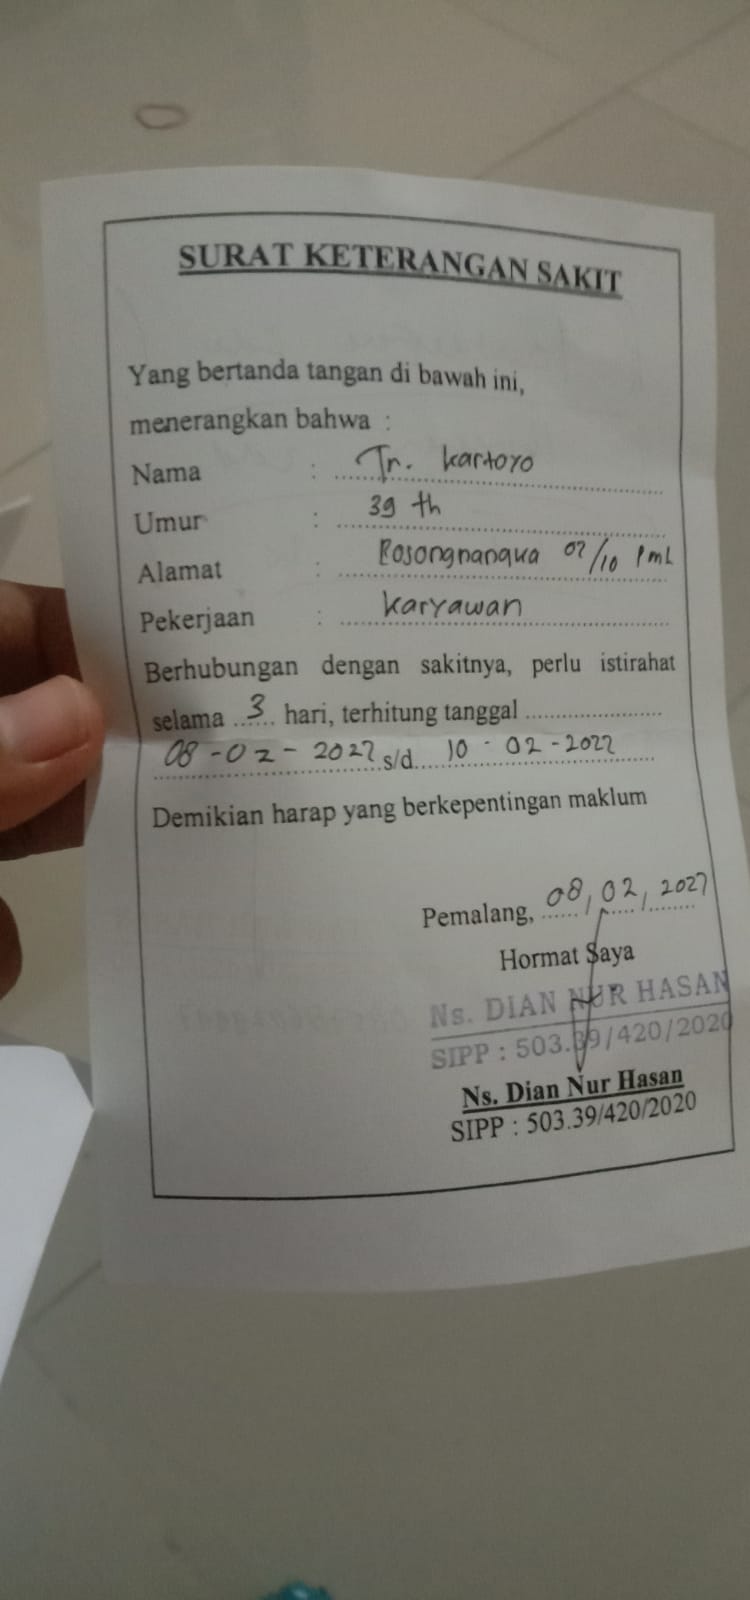 SURAT KETERANGAN SAKIT
Yang bertanda tangan di bawah ini,
menerangkan bahwa :
Nama : Tn. Kartoyo
Umur : 39 th
Alamat : Bojongnangka 07/10 Pml
Pekerjaan : Karyawan
Berhubungan dengan sakitnya, perlu istirahat
selama ..3.. hari, terhitung tanggal
08-02-2022 s/d 10-02-2022
Demikian harap yang berkepentingan maklum
Pemalang, 08, 02, 2022
Hormat Saya
Ns. DIAN NUR HASAN
SIPP : 503.39/420/2020
Ns. Dian Nur Hasan
SIPP : 503.39/420/2020